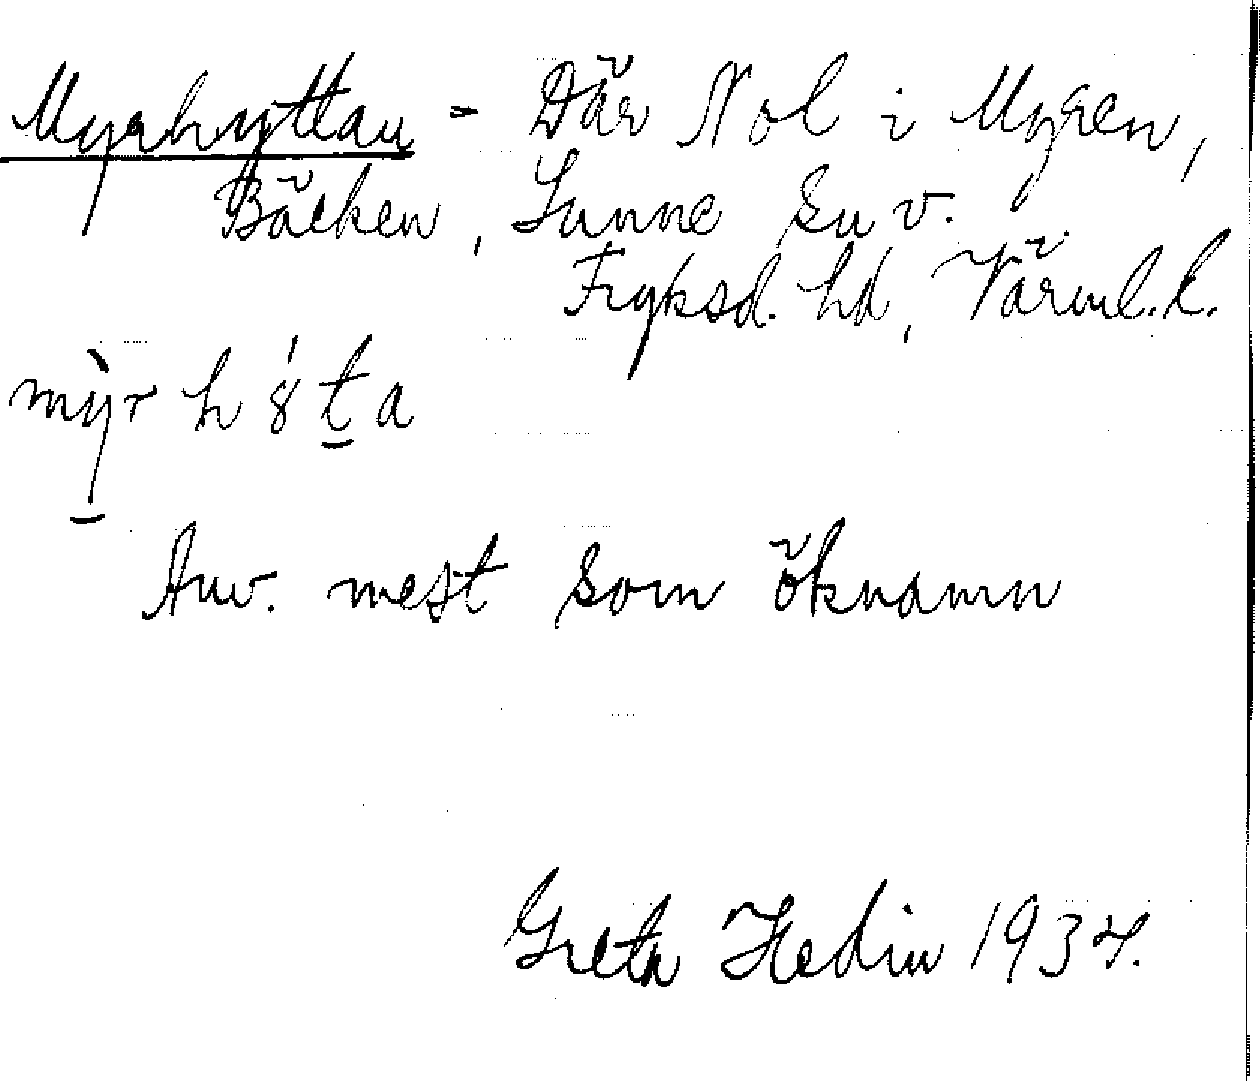 Myrhyttan - Där Nol i Myren,
Bäcken, Sunne sn v.
Fryksd. hd, Värml. l.
mỳr h ȣ́ t̠ a
Anv. mest som öknamn
Greta Hedin 1934.